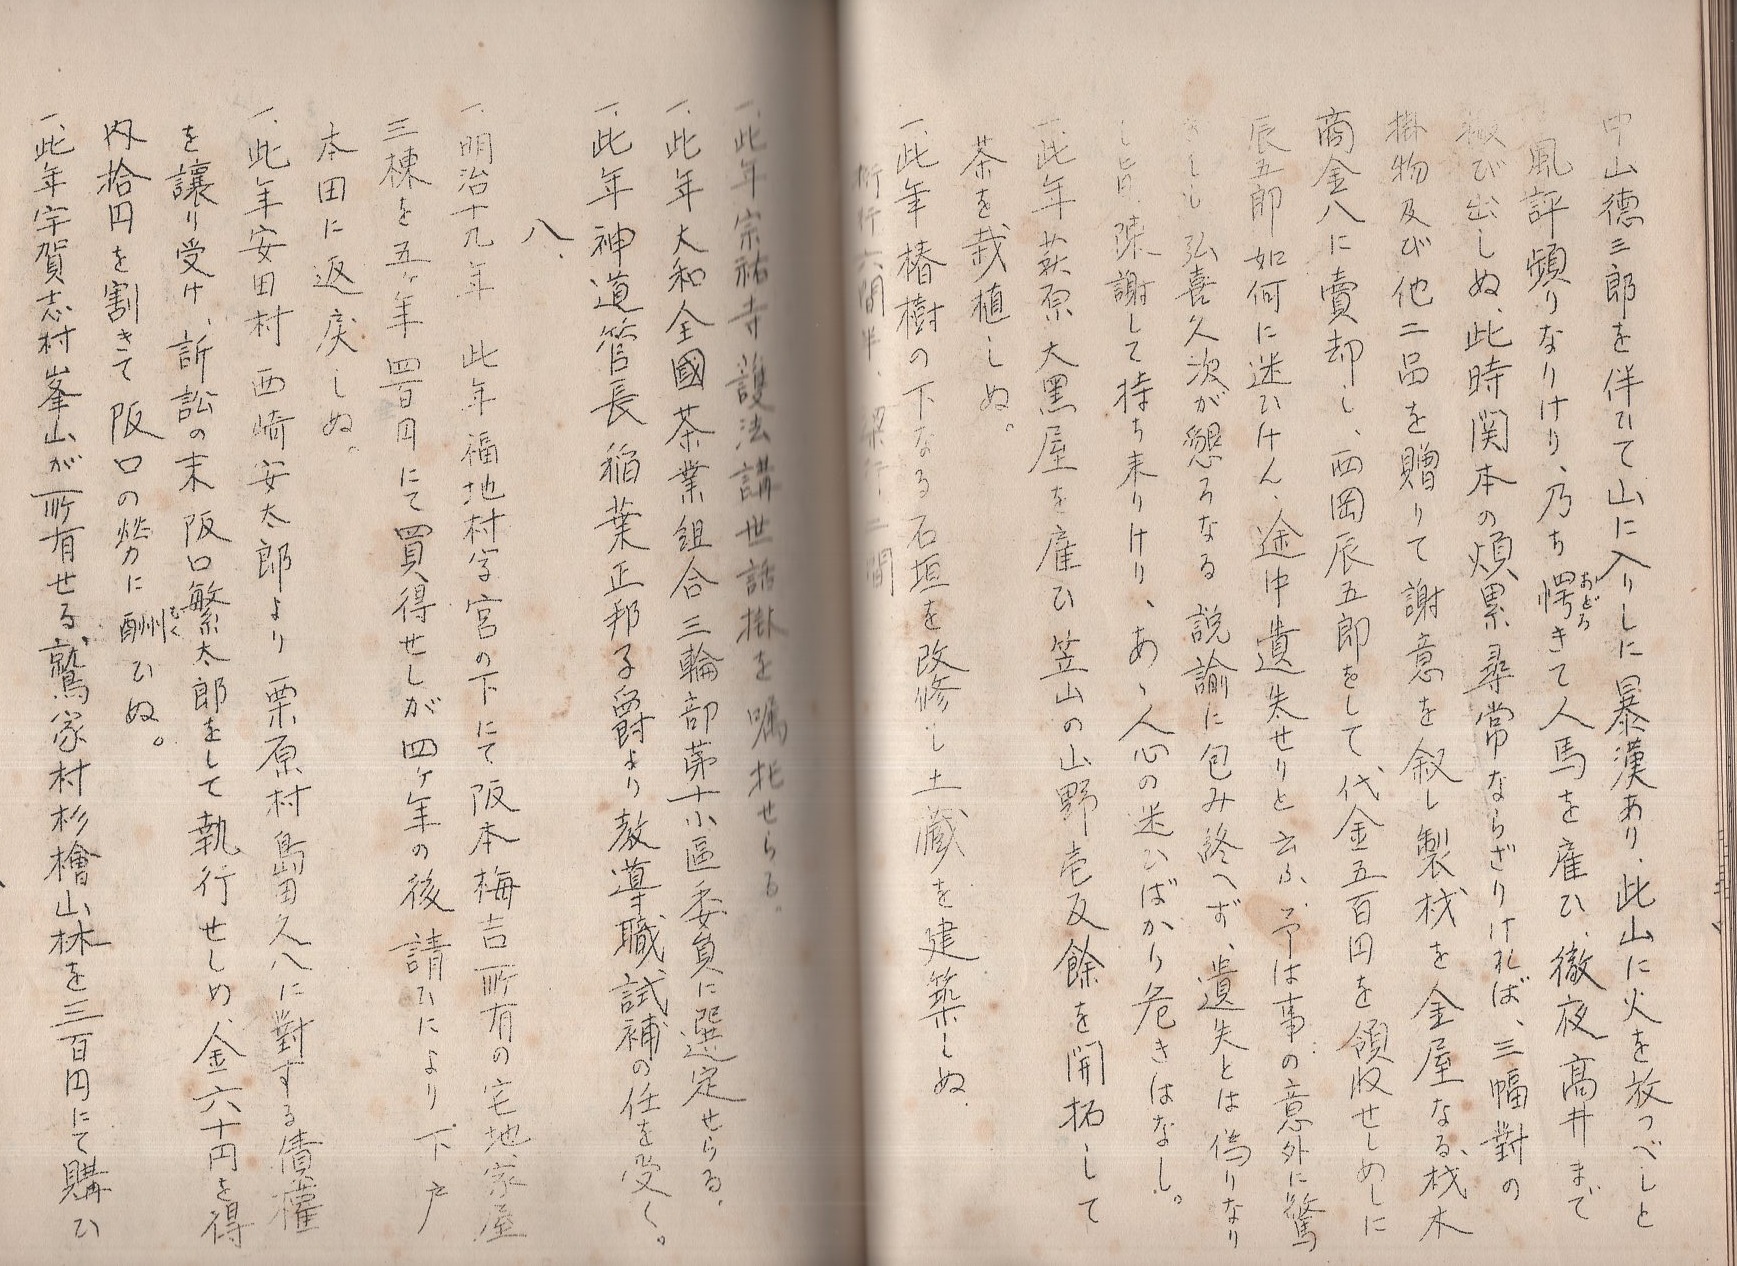 中山德三郎を伴ひて山に入りしに暴漢あり、此山に火を放つべしと
風評頻りなりけり、乃ち愕きて人馬を雇ひ、徹夜高井まで
おどろ
搬び出しぬ、此時関本の煩累尋常ならざりければ、三幅對の
掛物及び他二品を贈りて謝意を叙し製材を金屋なる、材木
商金八に賣却し、西岡辰五郎をして代金五百円を領収せしめしに
辰五郎如何に迷ひけん、途中遺失せりと云ふ、予は事の意外に驚
きしも弘喜久次が懇ろなる説諭に包み終へず、遺失とは偽りなり
し旨、陳謝して持ち来りけり、あゝ人心の迷ひばかり危きはなし。
一、此年萩原大黒屋を雇ひ笠山の山野壱反餘を開拓して
茶を栽植しぬ。
一、此年椿樹の下なる石垣を改修し土蔵を建築しぬ、
桁行六間半、梁行、二間
一、此年宗祐寺護法講世話掛を嘱托せらる。
一、此年大和全國茶業組合三輪部第十小區委員に選定せらる、
一、此年神道管長稲葉正邦子爵より教導職試補の任を受く。
八、
一、明治十九年 此年福地村字宮の下にて阪本梅吉所有の宅地、家屋
三棟を五ヶ年四百円にて買得せしが四ヶ年の後請ひにより下戸
本田に返戻しぬ。
一、此年安田村西崎安太郎より栗原村島田久八に對する債權
を讓り受け、訴訟の末阪口繁太郎をして執行せしめ、金六十円を得
内拾円を割きて阪口の勞に酬ひぬ。
むく
一、此年宇賀志村峯山が所有せる、鷲家村杉檜山林を三百円にて購ひ